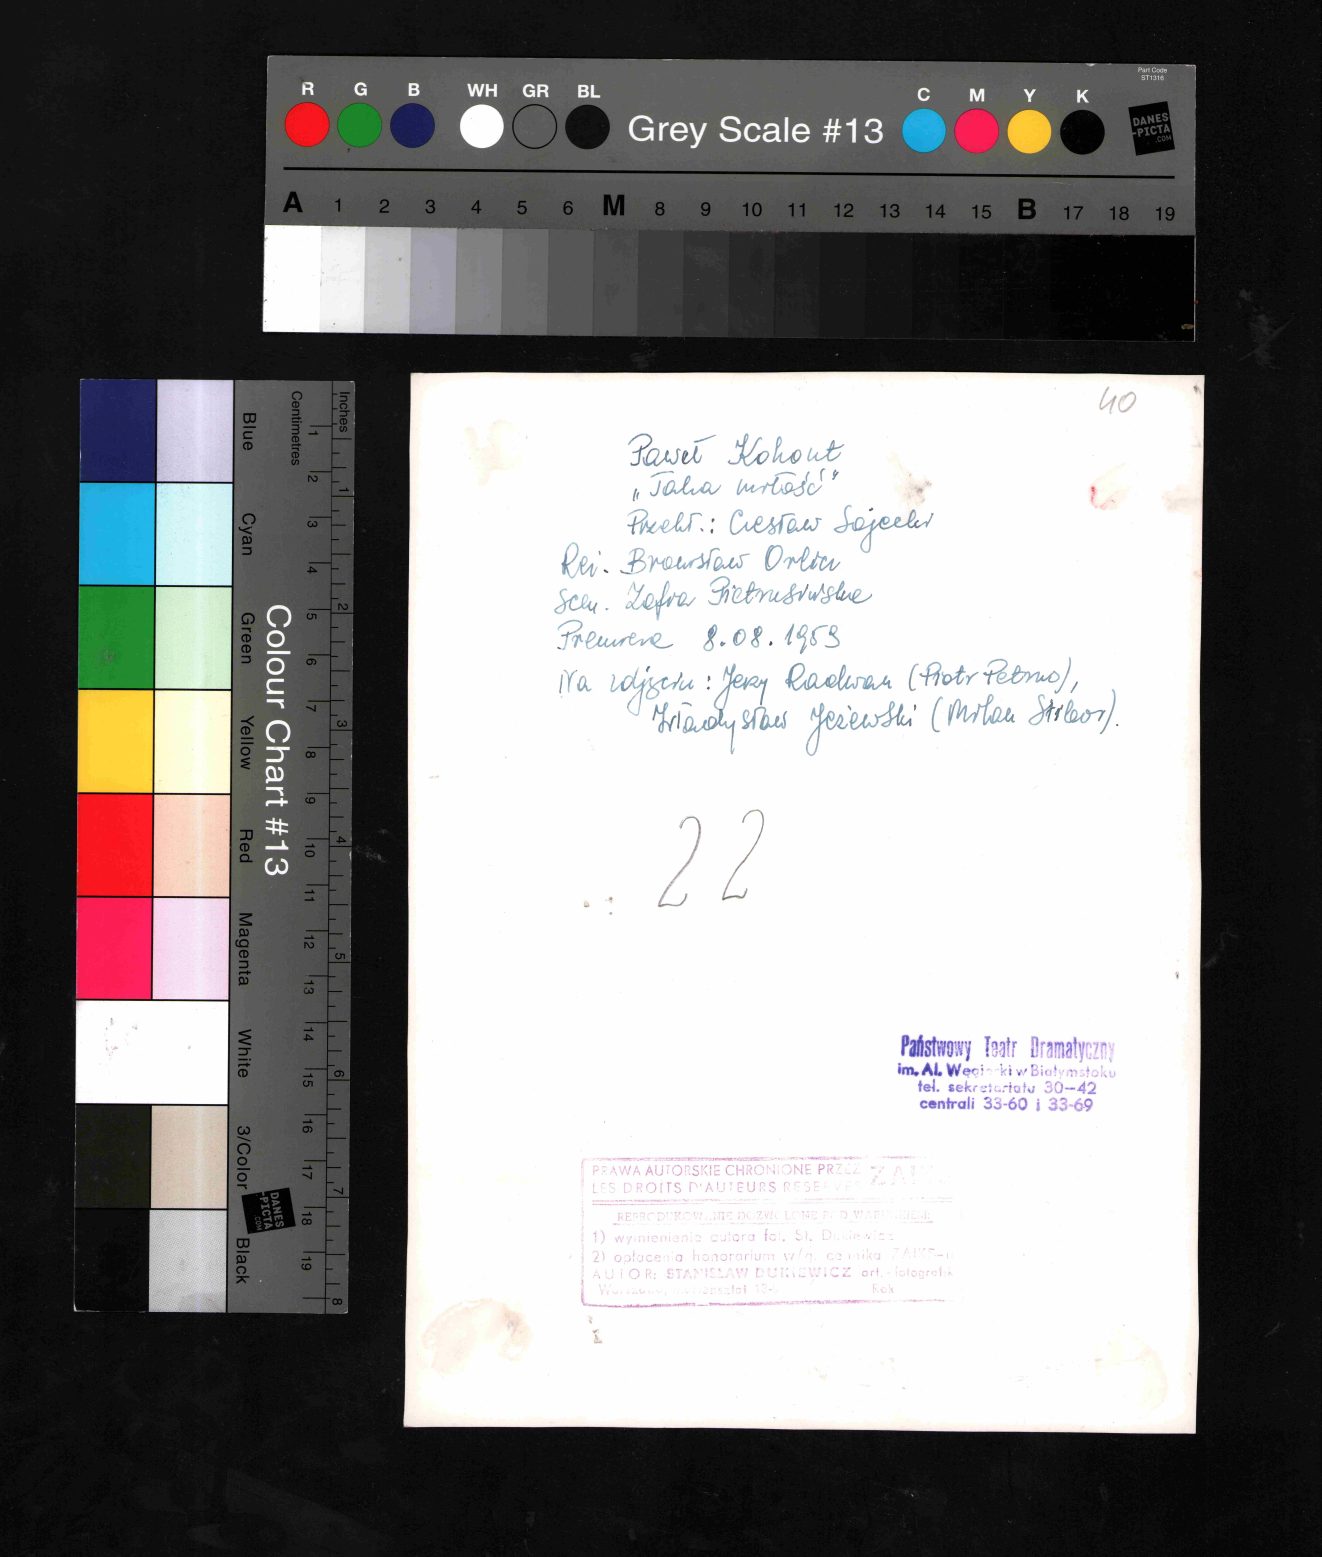 Part Code
ST1316
R G B WH GR BL Grey Scale #13 C M Y K
DANES
-PICTA
.COM
A 1 2 3 4 5 6 M 8 9 10 11 12 13 14 15 B 17 18 19
Colour Chart #13
Blue Cyan Green Yellow Red Magenta White 3/Color Black
Centimetres 1 2 3 4 5 6 7 8 9 10 11 12 13 14 15 16 17 18 19
Inches 1 2 3 4 5 6 7 8
DANES
-PICTA
.COM
40
Paweł Kohout
„Taka miłość"
Przekł.: Czesław Sojecki
Reż. Bronisław Orlicz
Scen. Zofia Pietrusińska
Premiera 8.08.1959
Na zdjęciu: Jerzy Radwan (Piotr Petrus),
Władysław Jeżewski (Milan Stibor).
22
Państwowy Teatr Dramatyczny
im. Al. Węgierki w Białymstoku
tel. sekretariatu 30—42
centrali 33-60 i 33-69
PRAWA AUTORSKIE CHRONIONE PRZEZ ZAIKS
LES DROITS D'AUTEURS RESERVES
REPRODUKOWANIE DOZWOLONE POD WARUNKIEM:
1) wymienienia autora fot. St. Dukiewicz
2) opłacenia honorarium w/g. cennika ZAIKS-u
AUTOR: STANISŁAW DUKIEWICZ art.-fotografik
Rok